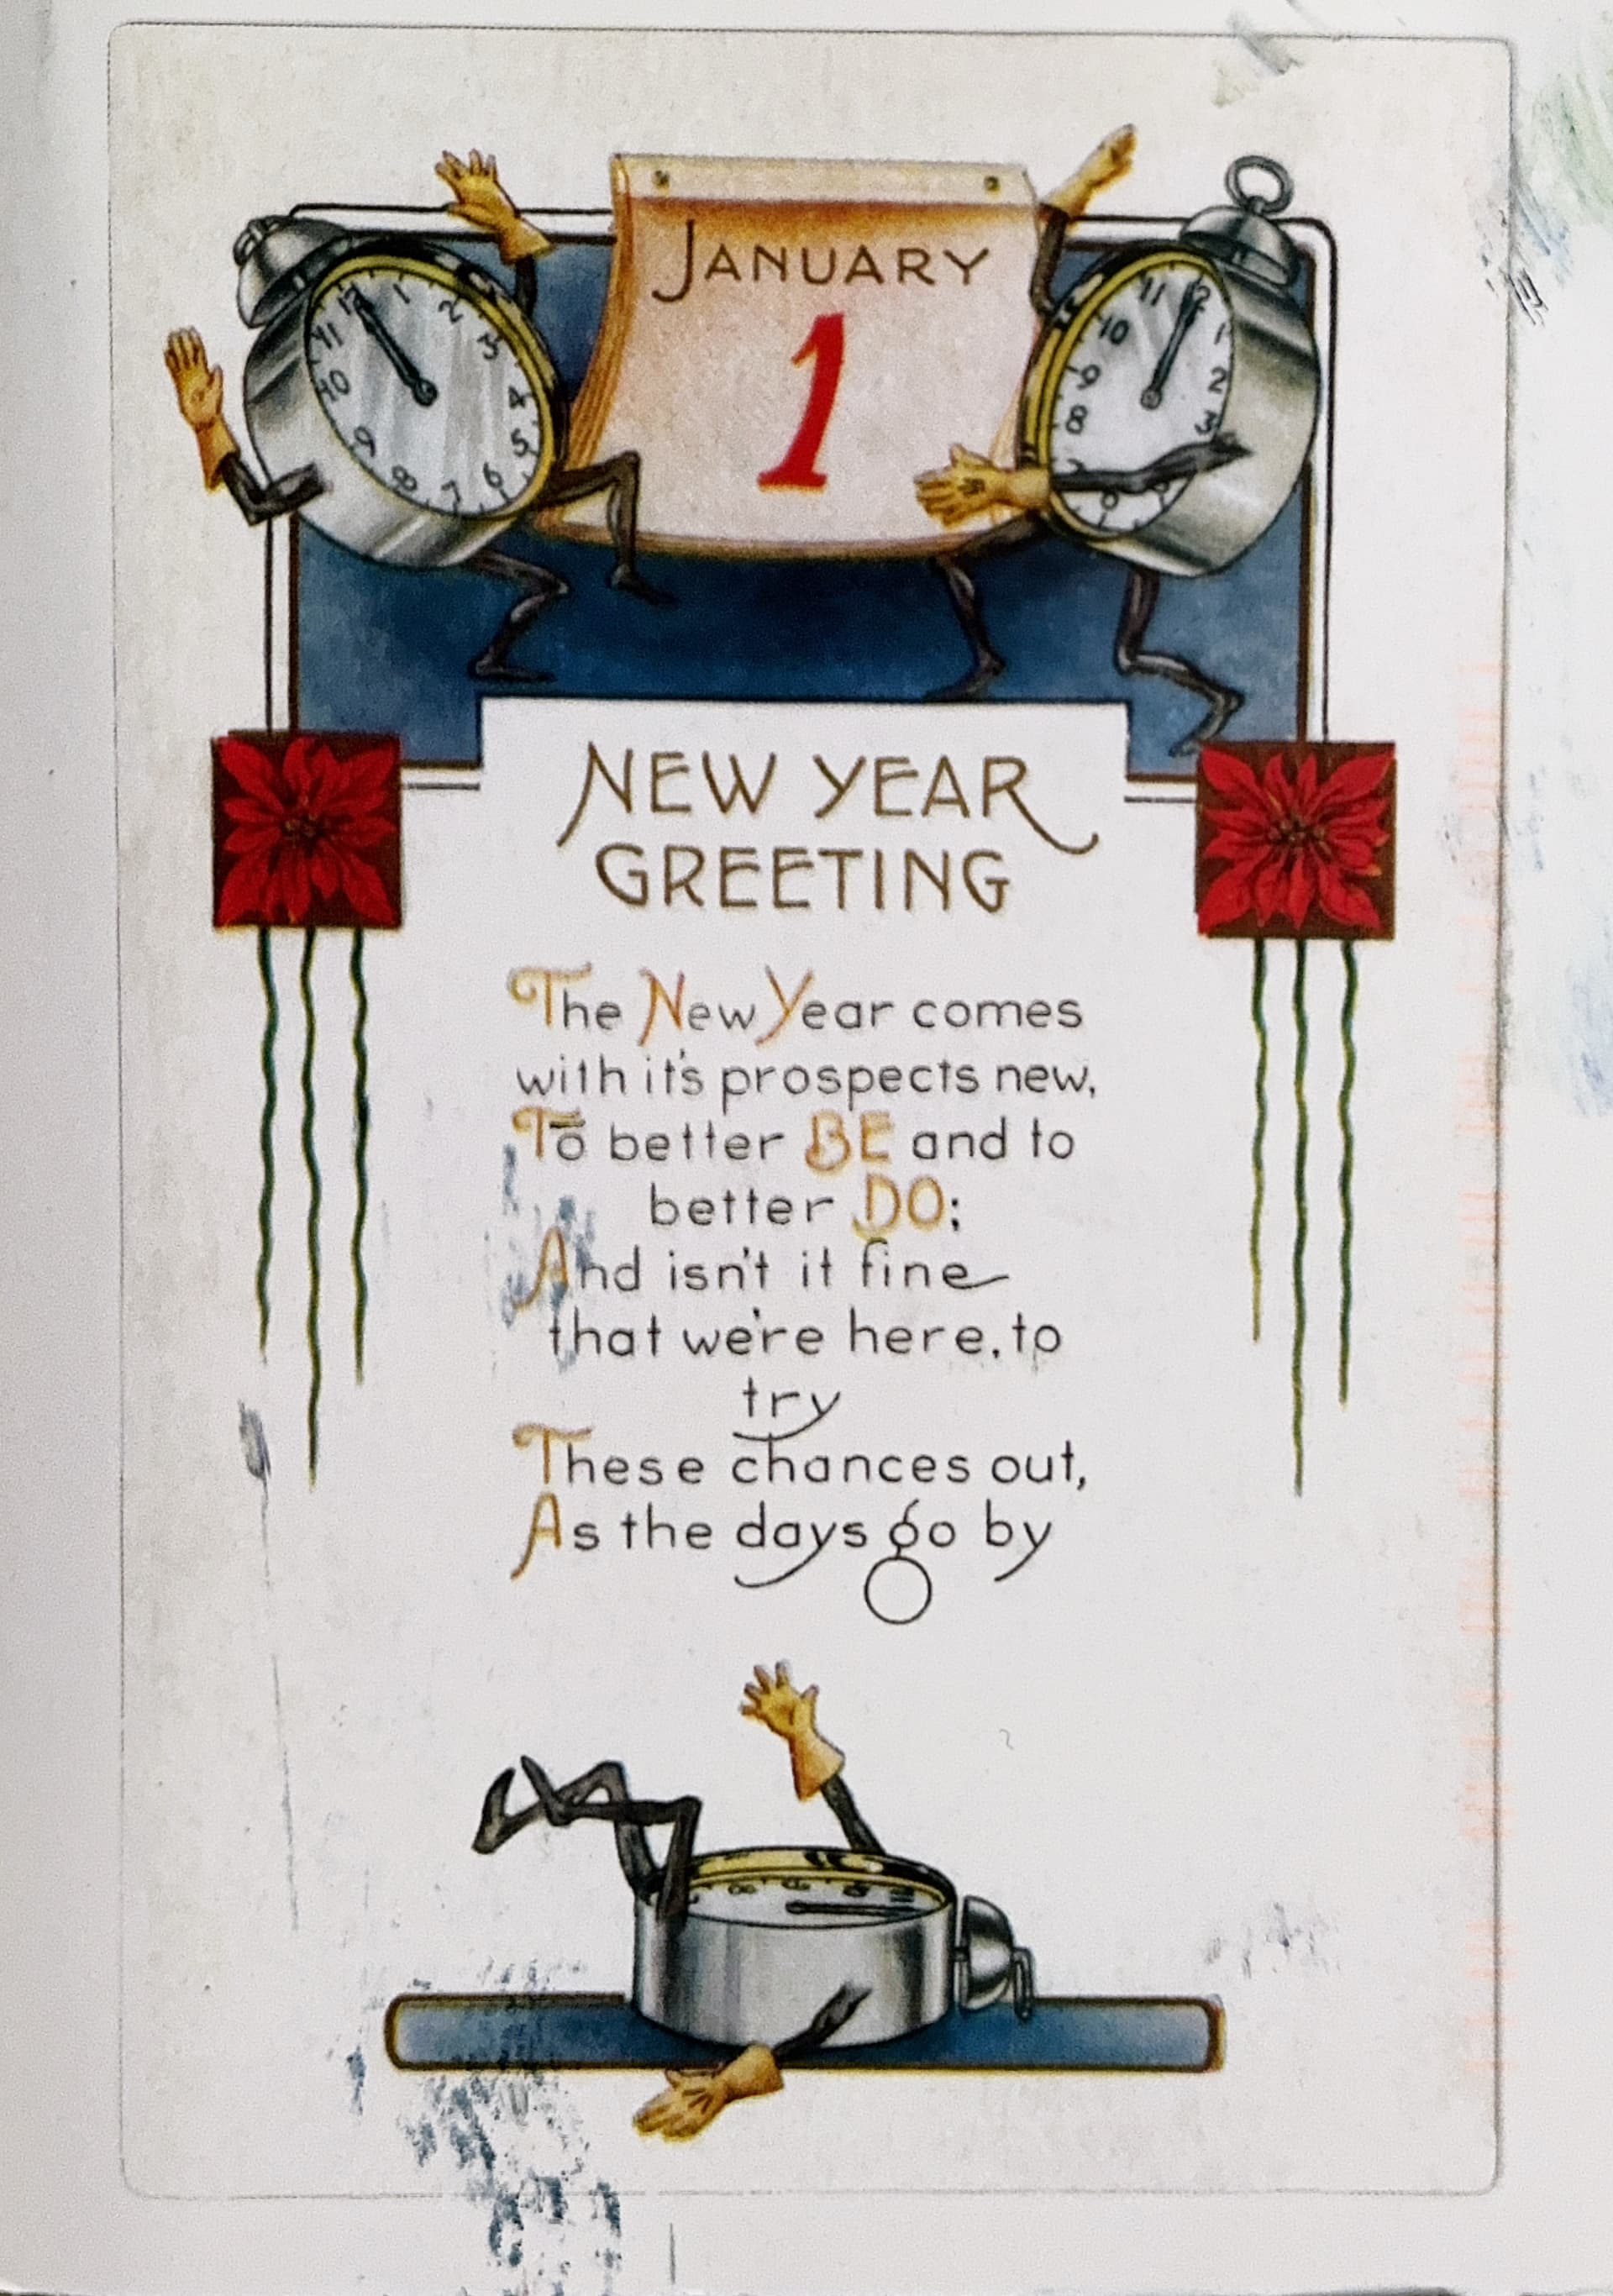 JANUARY
1
12 1 2 3 4 5 6 7 8 9 10 11
11 12 1 2 3 6 7 8 9 10
NEW YEAR
GREETING
The New Year comes
with it's prospects new,
To better BE and to
better DO;
And isn't it fine
that we're here, to
try
These chances out,
As the days go by